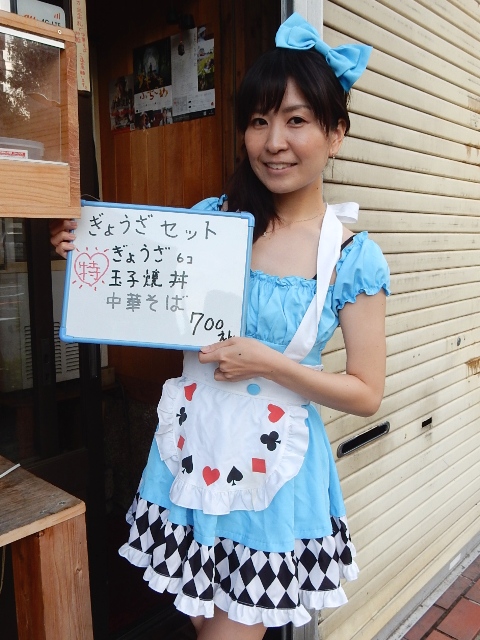 ぎょうざセット
特
ぎょうざ 6コ
玉子焼丼
中華そば
700